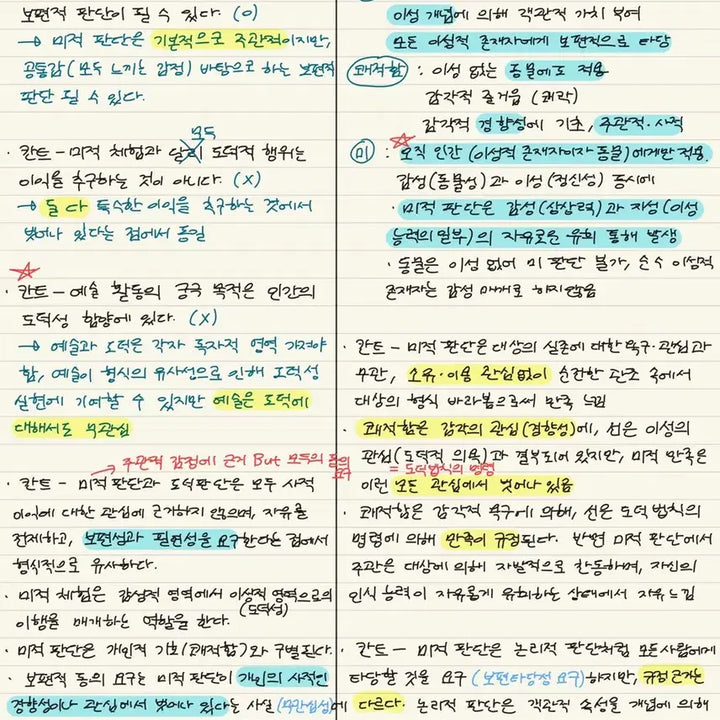 보편적 판단이 될 수 있다. (O)
→ 미적 판단은 기본적으로 주관적이지만,
공통감(모두 느끼는 감정) 바탕으로 하는 보편적
판단 될 수 있다.
모두
· 칸트 - 미적 체험과 달리 도덕적 행위는
이익을 추구하는 것이 아니다. (X)
→ 둘 다 특수한 이익을 추구하는 것에서
벗어나 있다는 점에서 동일
· 칸트 - 예술 활동의 궁극 목적은 인간의
도덕성 함양에 있다. (X)
→ 예술과 도덕은 각자 독자적 영역 가져야
함, 예술이 형식의 유사성으로 인해 도덕성
실현에 기여할 수 있지만 예술은 도덕에
대해서도 무관심
→ 주관적 감정에 근거 But 모두의 동의 요구
· 칸트 - 미적 판단과 도덕판단은 모두 사적
이익에 대한 관심에 근거하지 않으며, 자유를
전제하고, 보편성과 필연성을 요구한다는 점에서
형식적으로 유사하다.
· 미적 체험은 감성적 영역에서 이성적 영역으로의
(도덕성)
이행을 매개하는 역할을 한다.
· 미적 판단은 개인적 기호(쾌적함)와 구별된다.
· 보편적 동의 요구는 미적 판단이 개인의 사적인
경향성이나 관심에서 벗어나 있다는 사실 (무관심성)에
이성 개념에 의해 객관적 가치 부여
모든 이성적 존재자에게 보편적으로 타당
쾌적함 : 이성 없는 동물에도 적용
감각적 즐거움 (쾌락)
감각적 경향성에 기초, 주관적·사적
미 : 오직 인간 (이성적 존재자이자 동물)에게만 적용.
감성(동물성)과 이성(정신성) 동시에
· 미적 판단은 감성(상상력)과 지성(이성
능력의 일부)의 자유로운 유희 통해 발생
· 동물은 이성 없어 미 판단 불가, 순수 이성적
존재자는 감성 매개로 하지 않음
· 칸트 - 미적 판단은 대상의 실존에 대한 욕구·관심과
무관, 소유·이용 관심없이 순전한 관조 속에서
대상의 형식 바라봄으로써 만족 느낌
· 쾌적함은 감각의 관심(경향성)에, 선은 이성의
관심(도덕적 의욕)과 결부되어 있지만, 미적 만족은
= 도덕법칙의 명령
이런 모든 관심에서 벗어나 있음
· 쾌적함은 감각적 욕구에 의해, 선은 도덕 법칙의
명령에 의해 만족이 규정된다. 반면 미적 판단에서
주관은 대상에 의해 자발적으로 활동하며, 자신의
인식 능력이 자유롭게 유희하는 상태에서 자유 느낌
· 칸트 - 미적 판단은 논리적 판단처럼 모든 사람에게
타당할 것을 요구 (보편타당성 요구)하지만, 규정근거는
다르다. 논리적 판단은 객관적 속성을 개념에 의해